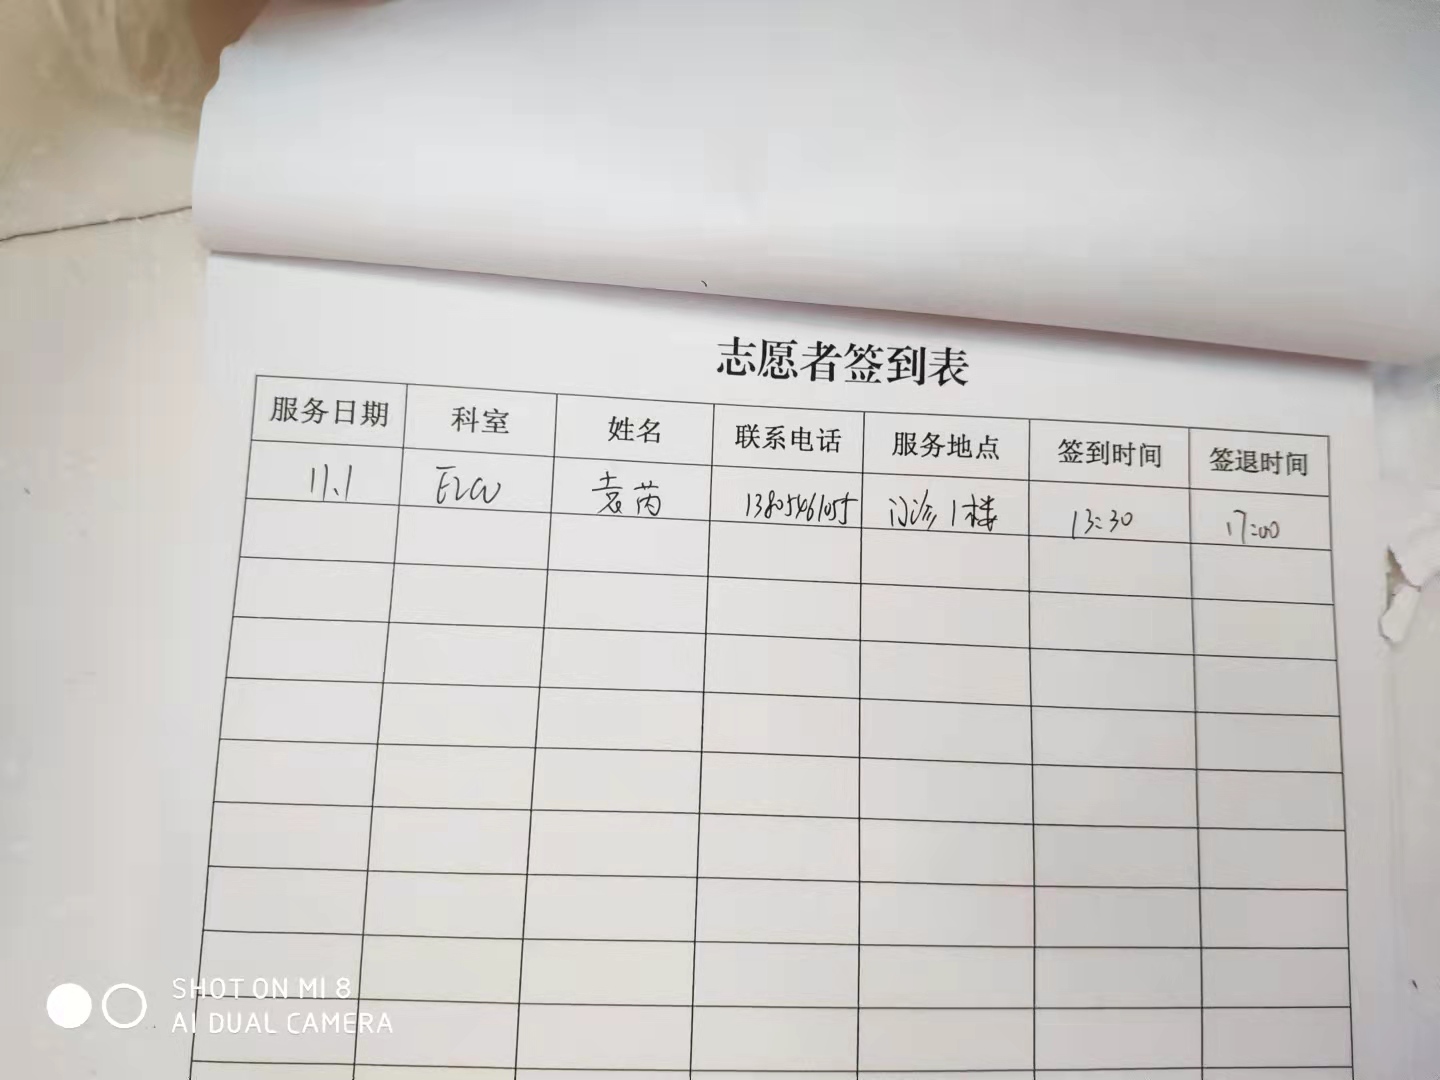 志愿者签到表
服务日期 科室 姓名 联系电话 服务地点 签到时间 签退时间
11.1 EICU 袁芮 13805461055 门诊1楼 13:30 17:00
SHOT ON MI 8
AI DUAL CAMERA